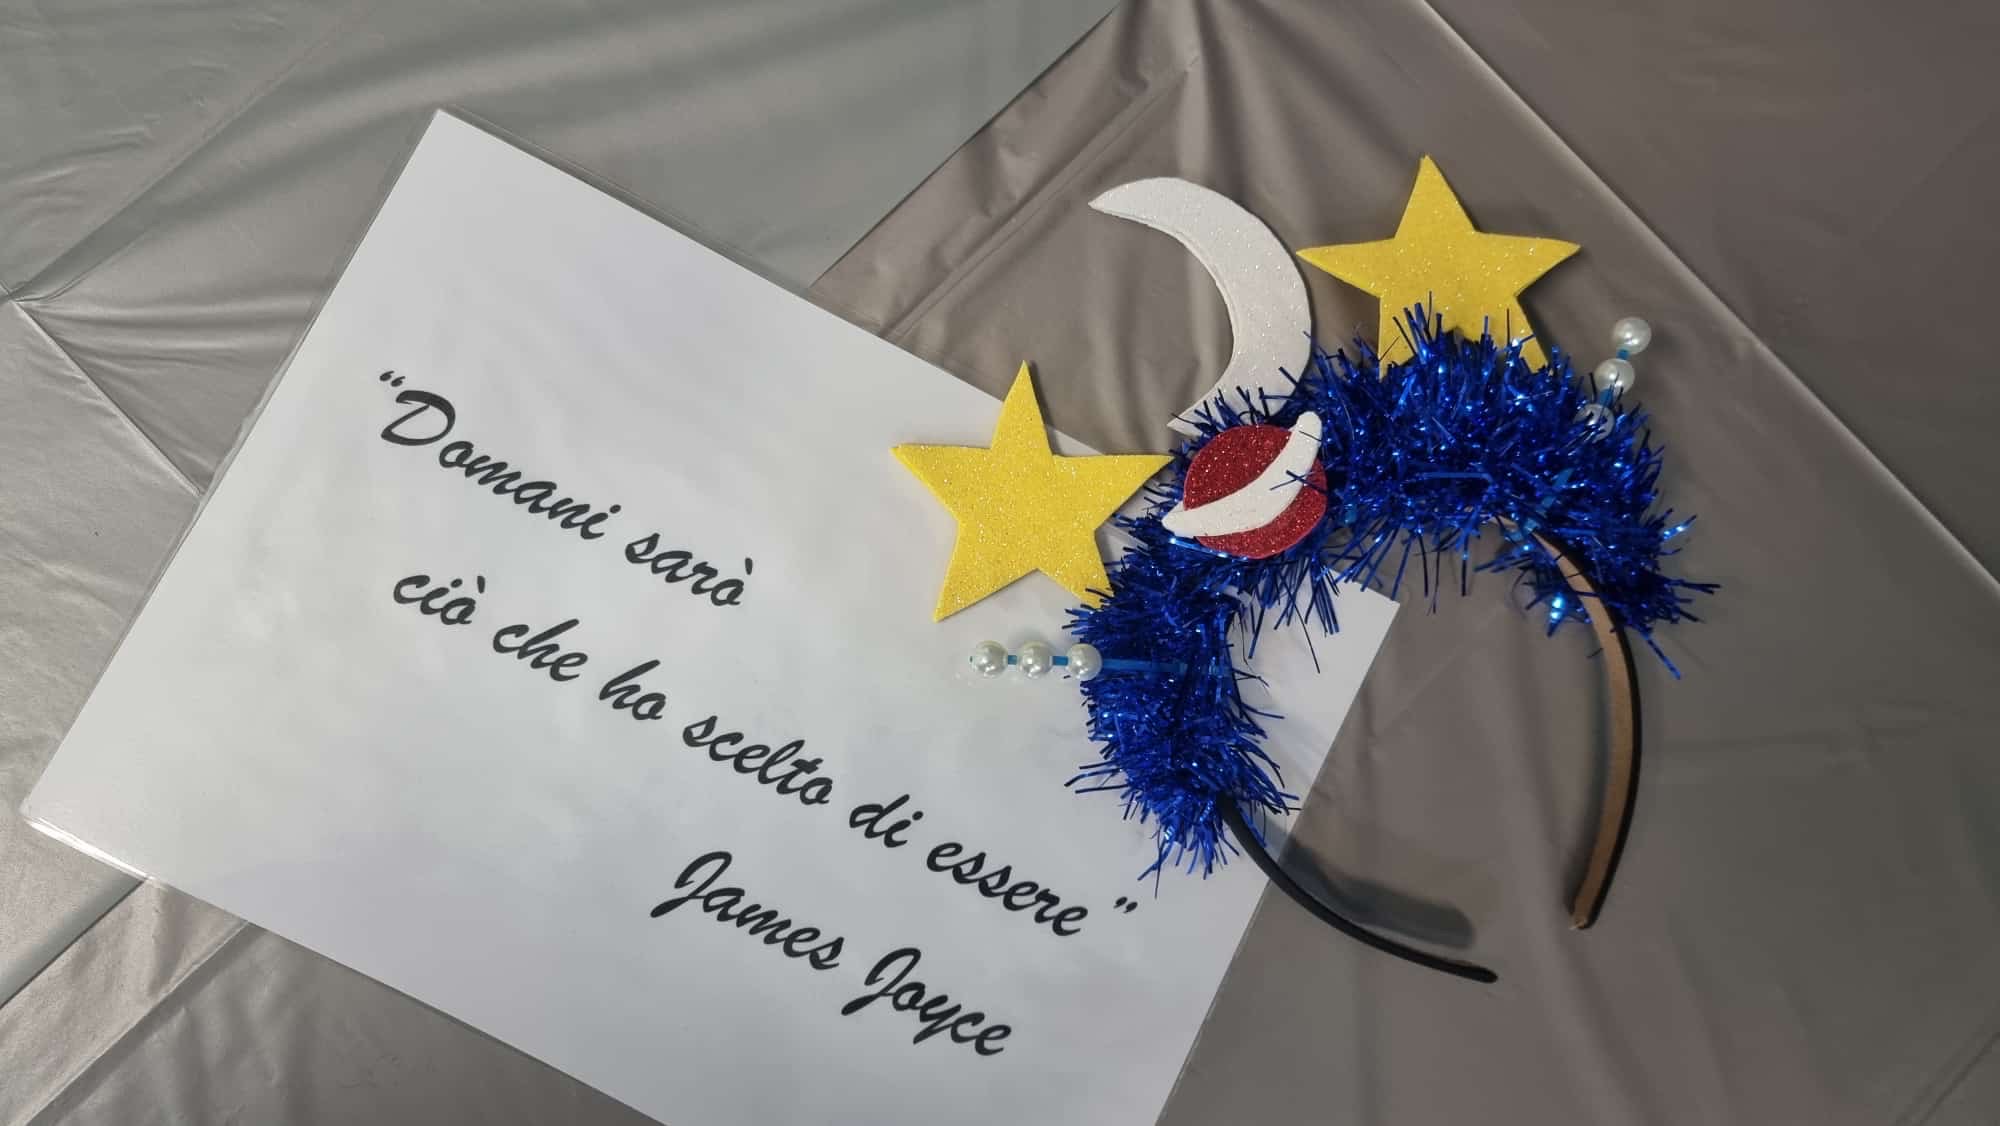 “Domani sarò
ciò che ho scelto di essere”
James Joyce